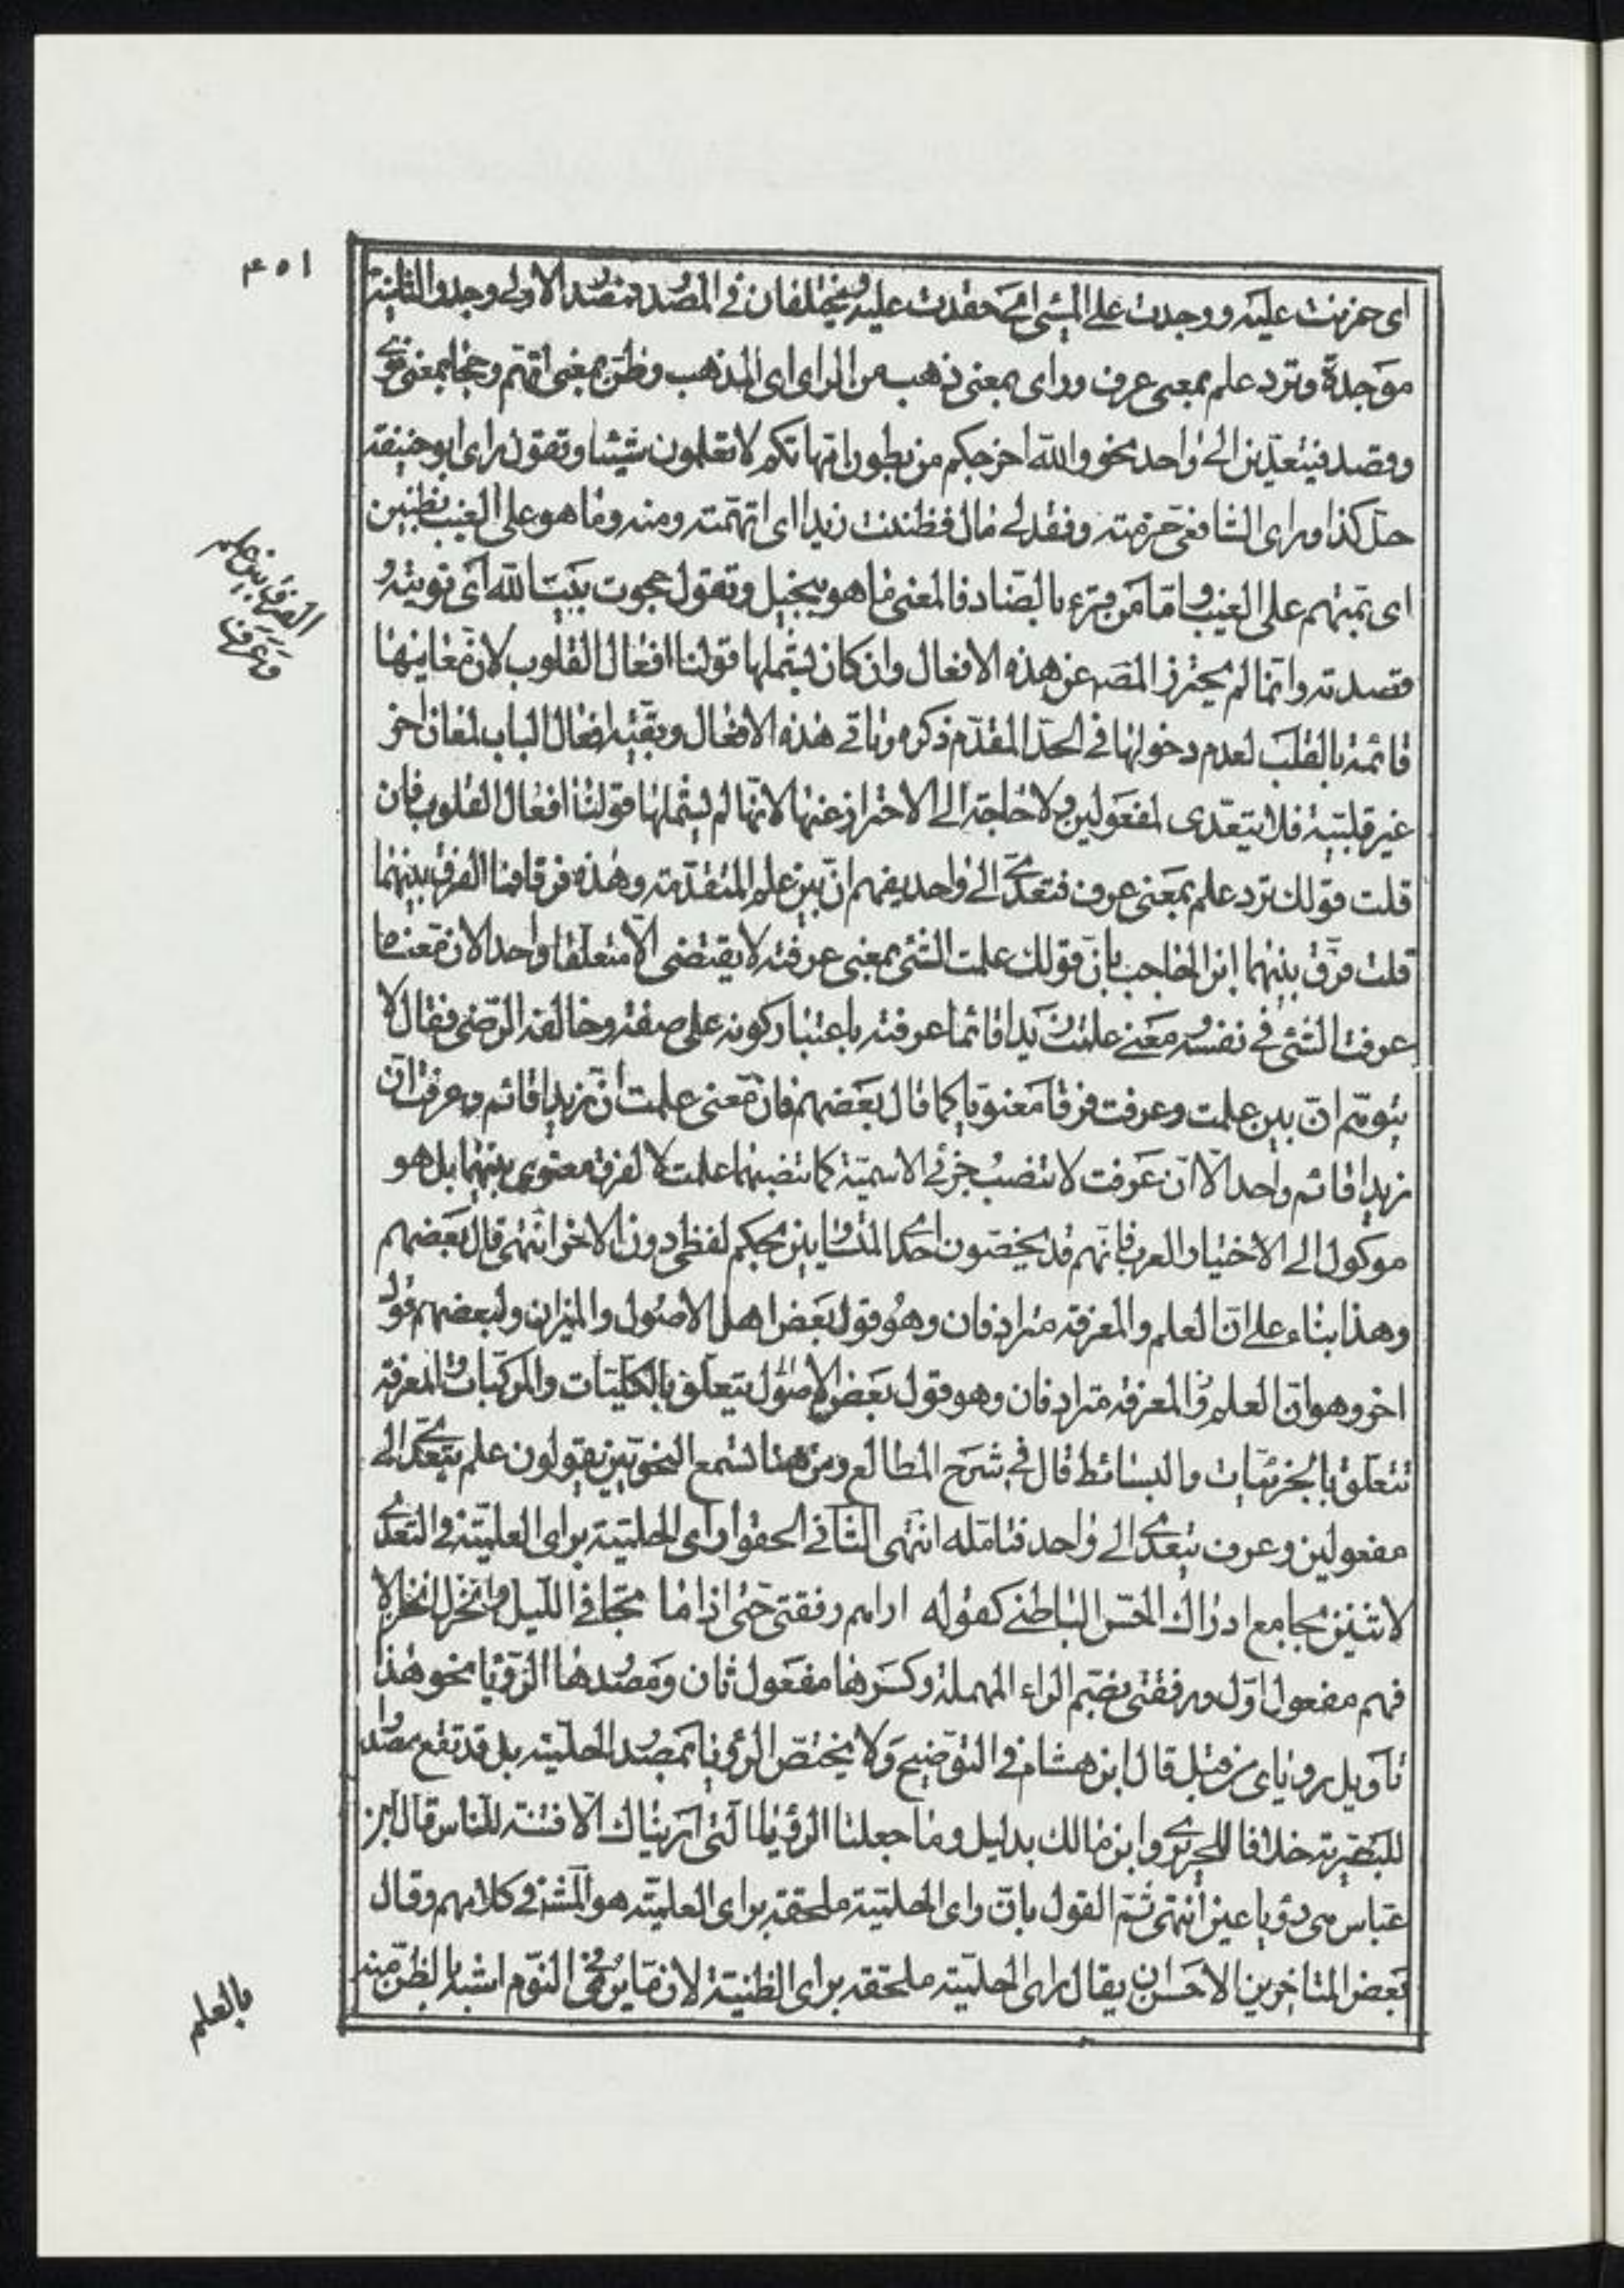 ٤٥١
اى حزنت عليه ووجدت على المسئ اى حقدت عليه ويختلفان فى المصدر فمصدر الاولى وجد والثانية
موجدة وترد علم بمعنى عرف وراى بمعنى ذهب من الراى اى المذهب وظن بمعنى اتهم وحجا بمعنى نوى
وقصد فيتعدين الى واحد نحو والله اخرجكم من بطون امهاتكم لا تعلمون شيئا وتقول راى ابو حنيفة
حل كذا وراى الشافعى حرمته وفقد لى مال فظننت زيدا اى اتهمته ومنه وما هو على الغيب بظنين
اى بمتهم على الغيب واما من قرء بالضاد فالمعنى ما هو ببخيل وتقول حجوت بيت الله اى نويته و
قصدته وانما لم يحترز المصـ عن هذه الافعال وان كان يشملها قولنا افعال القلوب لان معانيها
قائمة بالقلب لعدم دخولها فى الحد المقدم ذكره وتاتى هذه الافعال وبقية افعال الباب لمعان اخر
غير قلبية فلا يتعدى لمفعولين ولا حاجة الى الاحتراز عنها لانها لم يشملها قولنا افعال القلوب فان
قلت قولك ترد علم بمعنى عرف فتعدى الى واحد يفهم ان بين علم المتقدمة وهذه فرقا فما الفرق بينهما
قلت فرق بينهما ابن الحاجب بان قولك علمت الشئ بمعنى عرفته لا يقتضى الا متعلقا واحدا لان معناه
عرفت الشئ فى نفسه ومعنى علمت زيدا قائما عرفته باعتبار كونه على صفة وخالفه الرضى فقال لا
يتوهم ان بين علمت وعرفت فرقا معنويا كما قال بعضهم فان معنى علمت ان زيدا قائم وعرفت ان
زيدا قائم واحد الا ان عرفت لا تنصب جزئى الاسمية كما تنصبهما علمت لا لفرق معنوى بينهما بل هو
موكول الى الاختيار العرب فانهم قد يخصون احد المتساويين بحكم لفظى دون الاخر انتهى قال بعضهم
وهذا بناء على ان العلم والمعرفة مترادفان وهو قول بعض اهل الاصول والميزان ولبعضهم قول
اخر وهو ان العلم والمعرفة مترادفان وهو قول بعض الاصول يتعلق بالكليات والمركبات والمعرفة
تتعلق بالجزئيات والبسائط قال فى شرح المطالع ومن هنا تسمع النحويين يقولون علم يتعدى الى
مفعولين وعرف يتعدى الى واحد فتامله انتهى الثانى الحقوا راى الحلمية براى العلمية فى التعدى
لاثنين بجامع ادراك الحس الباطنى كقوله اراهم رفقتى حتى اذا ما تجافى الليل وانخزل انخزالا
فهم مفعول اول ورفقتى بضم الراء المهملة وكسرها مفعول ثان ومصدرها الرؤيا نحو هذا
تاويل روياى من قبل قال ابن هشام فى التوضيح ولا يختص الرؤيا بمصدر الحلمية بل قد تقع مصدرا
للبصرية خلافا للحريرى وابن مالك بدليل وما جعلنا الرؤيا التى اريناك الا فتنة للناس قال ابن
عباس هى رؤيا عين انتهى ثم القول بان راى الحلمية ملحقة براى العلمية هو المش فى كلامهم وقال
بعض المتاخرين الاحسن ان يقال راى الحلمية ملحقة براى الظنية لان ما يرى فى النوم اشبه بالظن منه
الفرق بين علم
وعرف
بالعلم